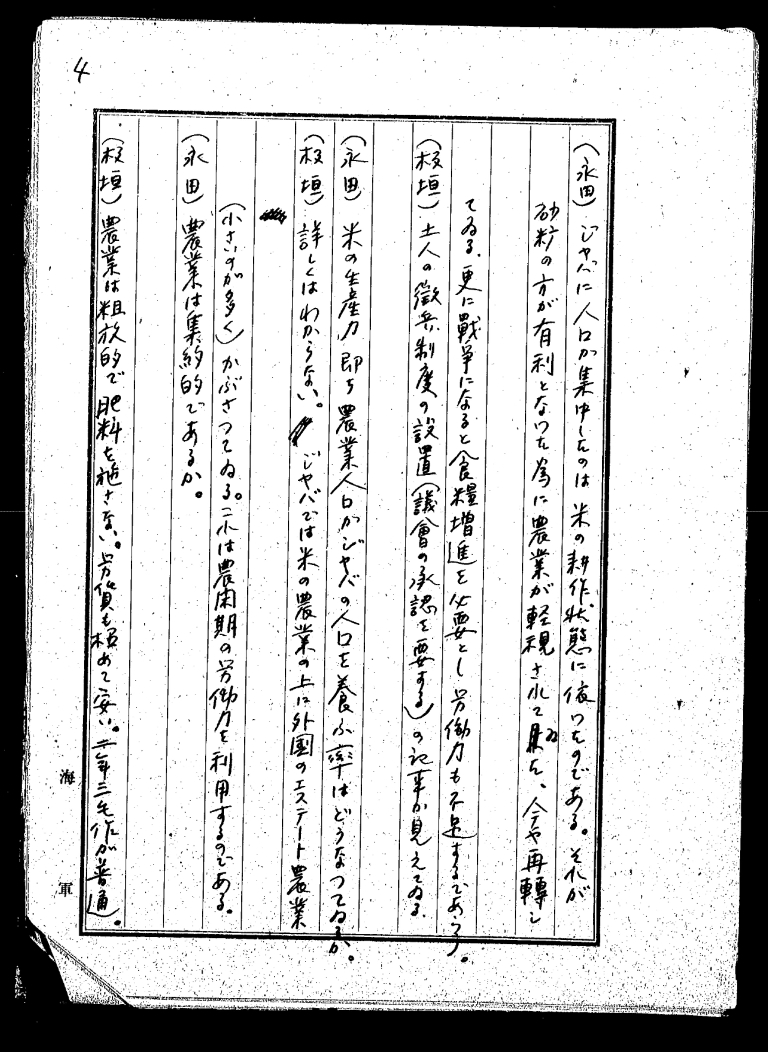 4
(永田) ジャバに人口が集中したのは米の耕作状態に依つたのである。それが
砂粒の方が有利となつた為に農業が軽視されてゐた、今や再轉し
てゐる。更に戰爭になると食糧増進を必要とし労働力も不足するであらう。
(板垣) 土人の徴兵制度の設置(議會の承認を要する)の記事が見えてゐる。
(永田) 米の生産力即ち農業人口がジャバの人口を養ふ率はどうなつてゐるか。
(板垣) 詳しくはわからない。ジャバでは米の農業の上に外国のエステート農業
(小さいのが多く)かぶさつてゐる。これは農閑期の労働力を利用するのである。
(永田) 農業は集約的であるか。
(板垣) 農業は粗放的で肥料を施さない。労賃も極めて安い。二年三毛作が普通。
海軍